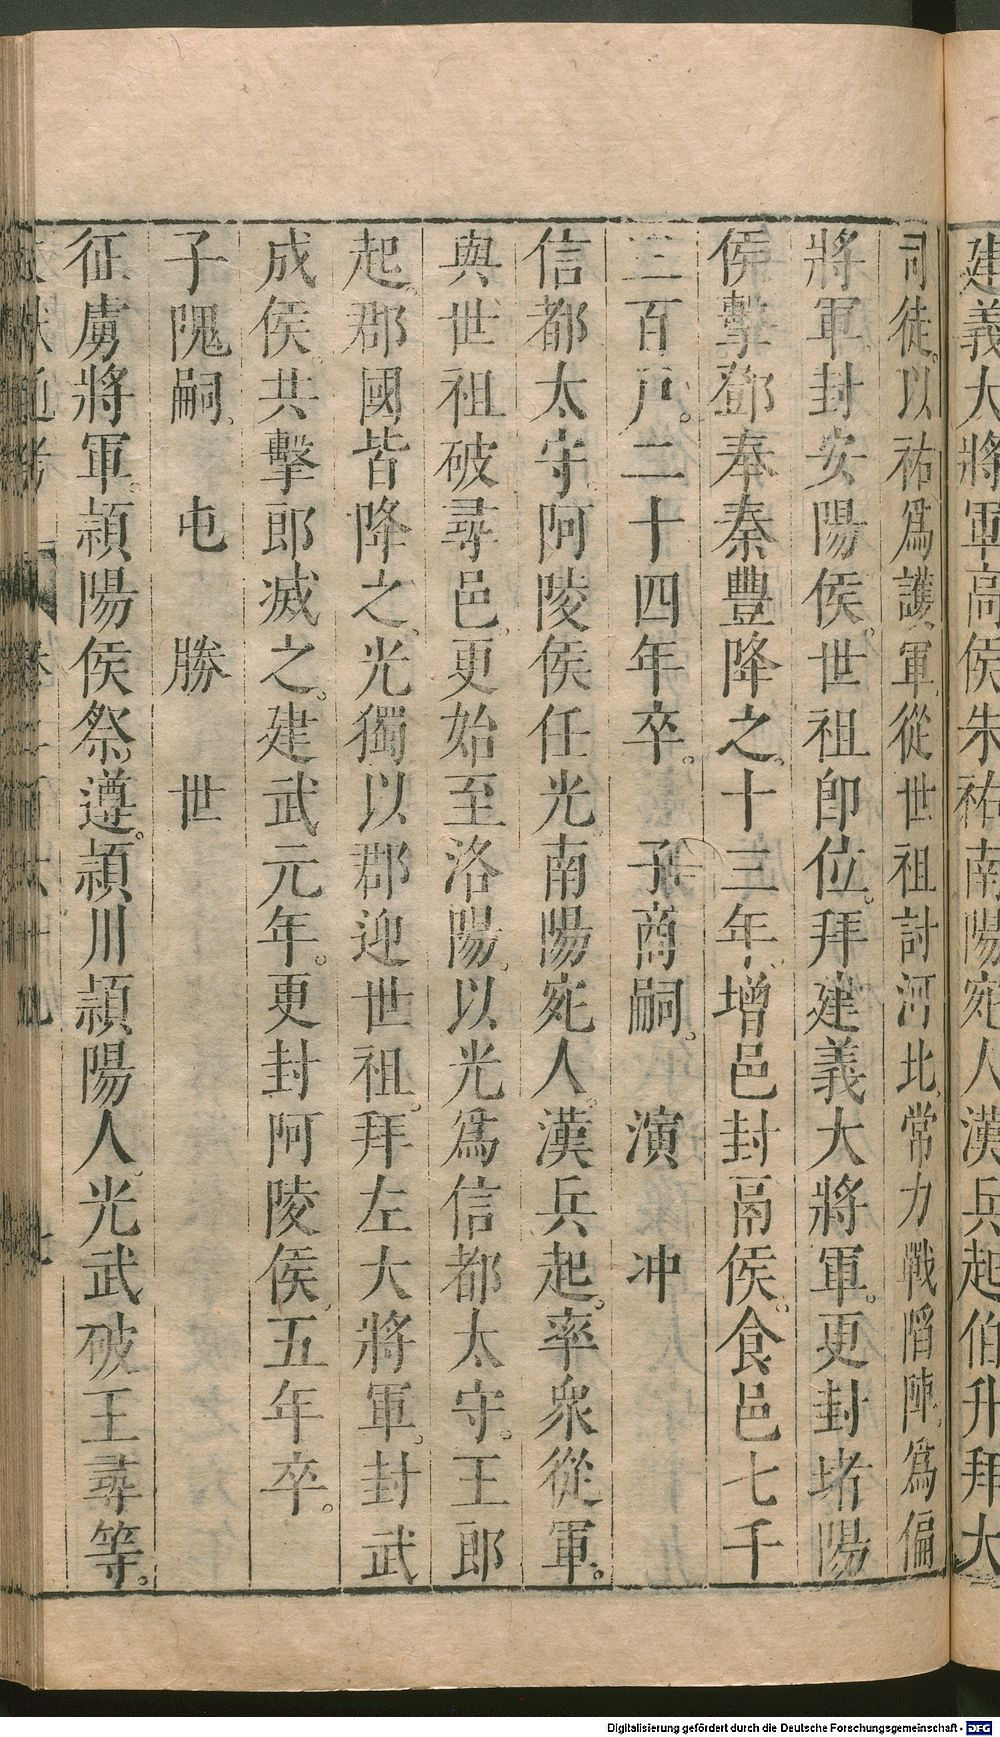 建義大將軍高侯朱祐南陽宛人漢兵起伯升拜大
司徒。以祐爲護軍從世祖討河北常力戰陷陣爲偏
將軍。封安陽侯。世祖即位。拜建義大將軍。更封堵陽
侯擊鄧奉秦豐降之。十三年增邑封鬲侯。食邑七千
三百戸。二十四年卒。　子商嗣。　演　冲
信都太守。阿陵侯任光。南陽宛人。漢兵起。率衆從軍。
與世祖破尋邑。更始至洛陽。以光爲信都太守。王郎
起。郡國皆降之。光獨以郡迎世祖。拜左大將軍。封武
成侯。共擊郎滅之。建武元年。更封阿陵侯。五年卒。
子隗嗣。　屯　勝　世
征虜將軍。潁陽侯祭遵。潁川潁陽人。光武破王尋等。
Digitalisierung gefördert durch die Deutsche Forschungsgemeinschaft - DFG